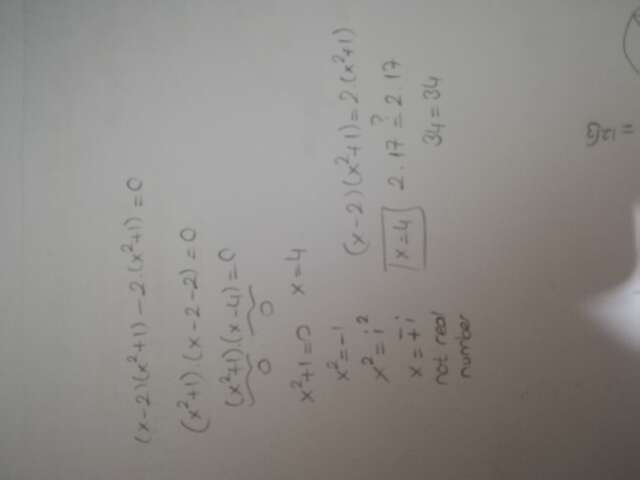 (x-2)(x²+1)-2.(x²+1)=0
(x²+1).(x-2-2)=0
(x²+1).(x-4)=0
0 0
x²+1=0 x=4
x²=-1
x²=i²
x=±i
not real
number
(x-2)(x²+1)=2.(x²+1)
x=4 2.17 ≟ 2.17
34=34